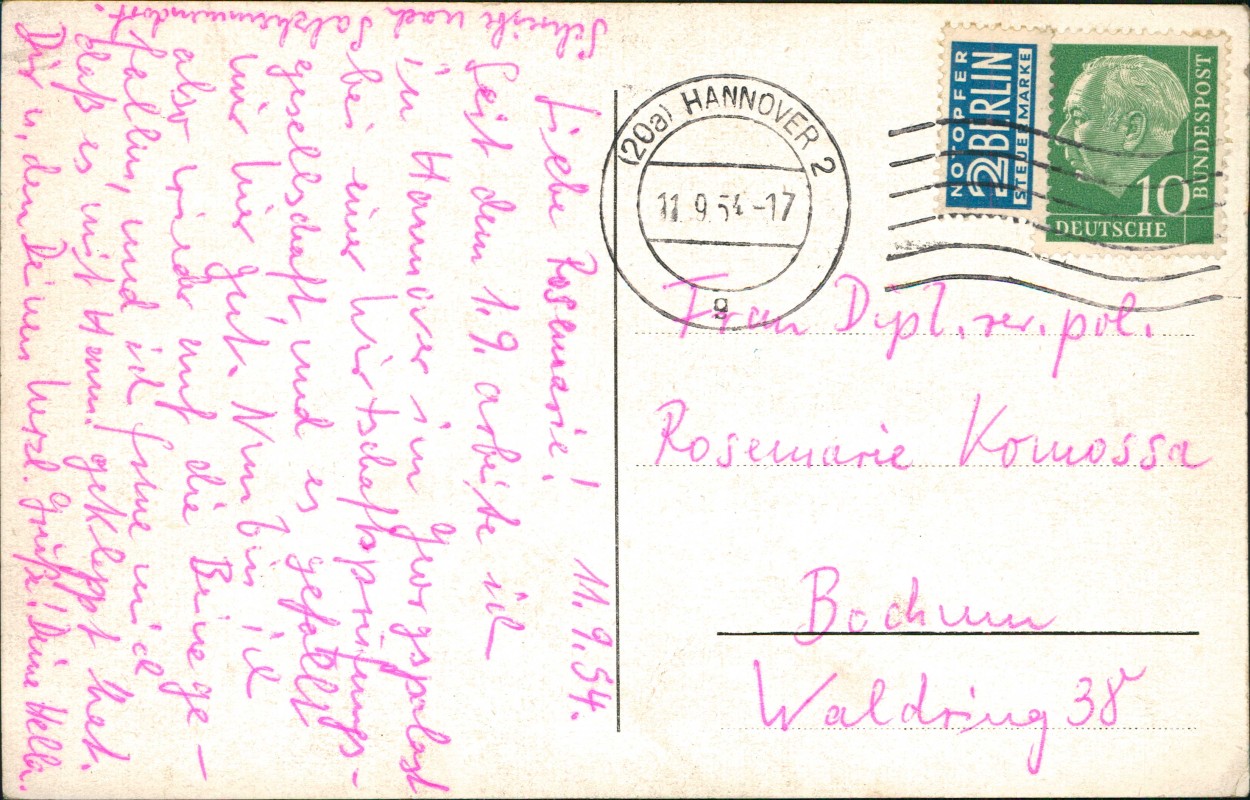 11.9.54.
Liebe Rosemarie!
Seit dem 1.9. arbeite ich
in Hannover im Georgspalast
bei einer Wirtschaftsprüfungs-
gesellschaft, und es gefällt
mir hier gut. Nun bin ich
also wieder auf die Beine ge-
fallen, und ich freue mich
daß es mit Hann. geklappt hat.
Dir u. den Deinen herzl. Grüße! Deine Hella.
Schreibe nach
Salzhemmendorf.
(20a) HANNOVER 2
11.9.54-17
g
NOTOPFER
2 BERLIN
STEUERMARKE
10
DEUTSCHE
BUNDESPOST
Frau Dipl. rer. pol.
Rosemarie Komossa
Bochum
Waldring 38